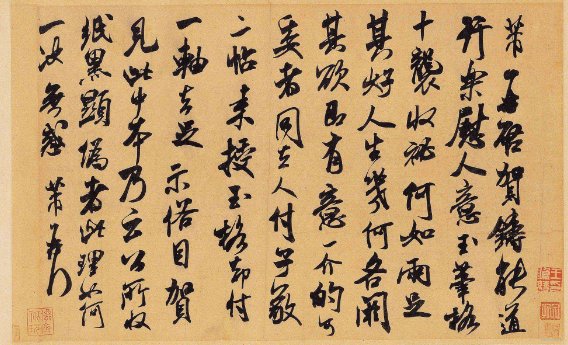 芾再啓賀鑄能道
行樂慰人意玉筆格
十襲收祕何如兩足
其好人生幾何各闊
其欲即有意一介的可
委者同去人付子敬
二帖來授玉格却付
一軸去足下示俗目賀
見此中本乃云公所收
紙黑顯偽者此理如何
一決無惑芾頓首